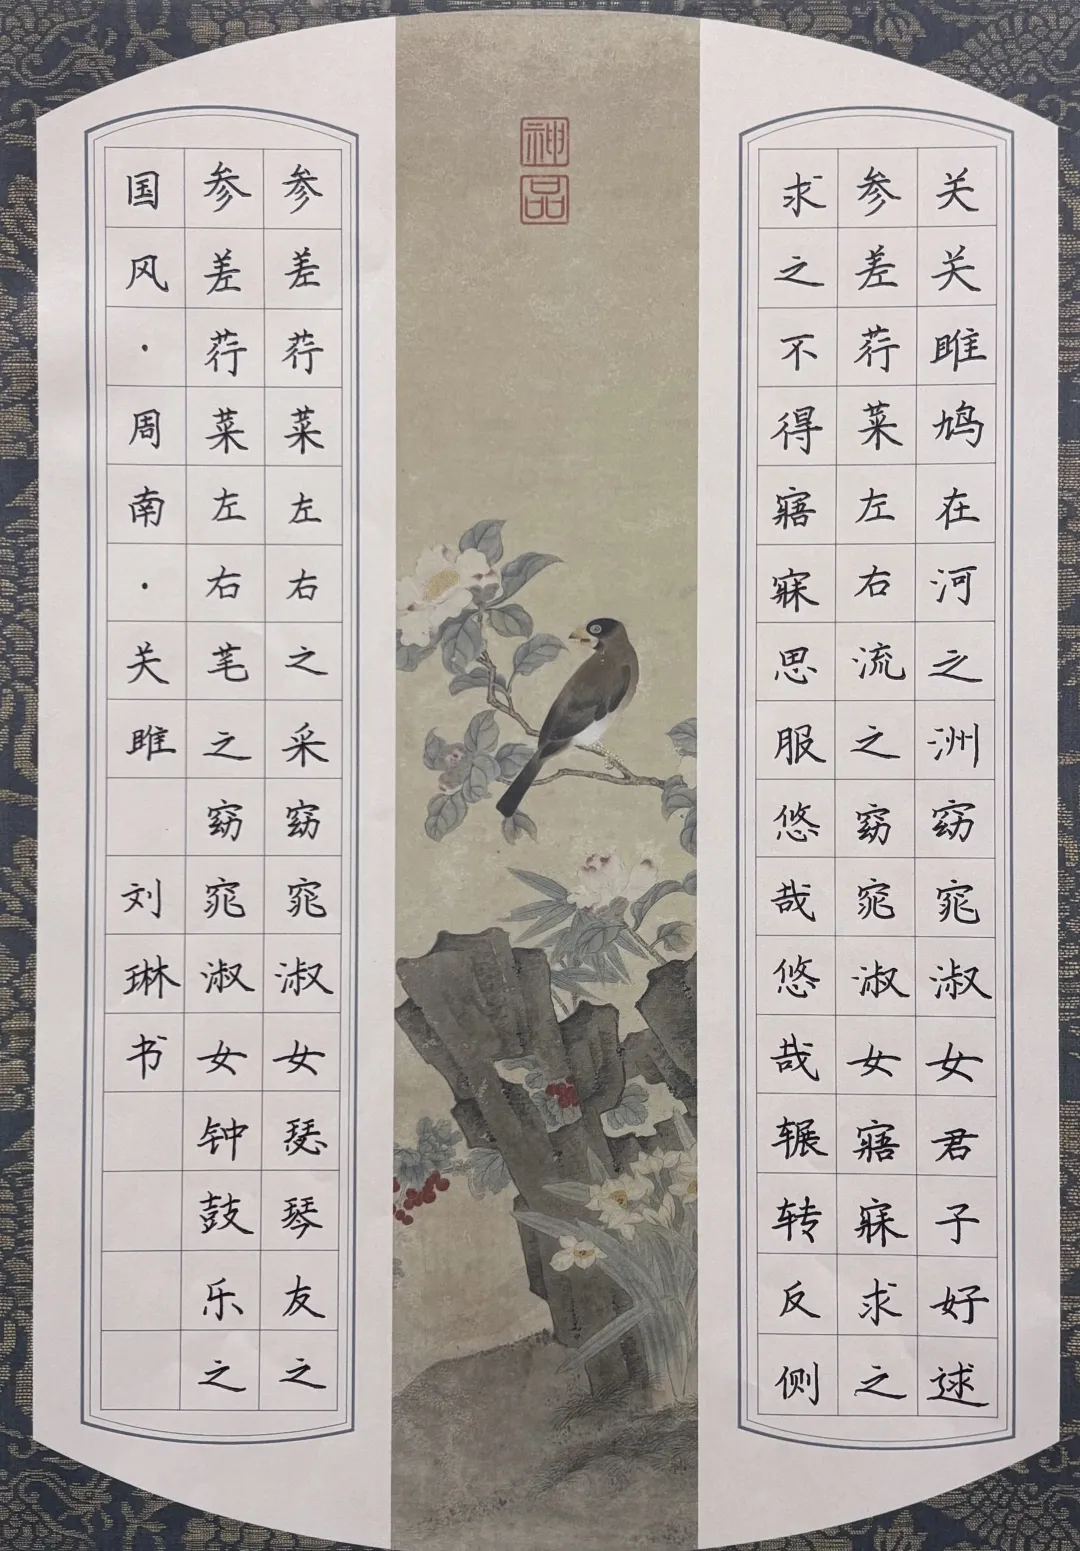 关关雎鸠在河之洲窈窕淑女君子好逑
参差荇菜左右流之窈窕淑女寤寐求之
求之不得寤寐思服悠哉悠哉辗转反侧
神品
参差荇菜左右之采窈窕淑女瑟琴友之
参差荇菜左右芼之窈窕淑女钟鼓乐之
国风·周南·关雎 刘琳书